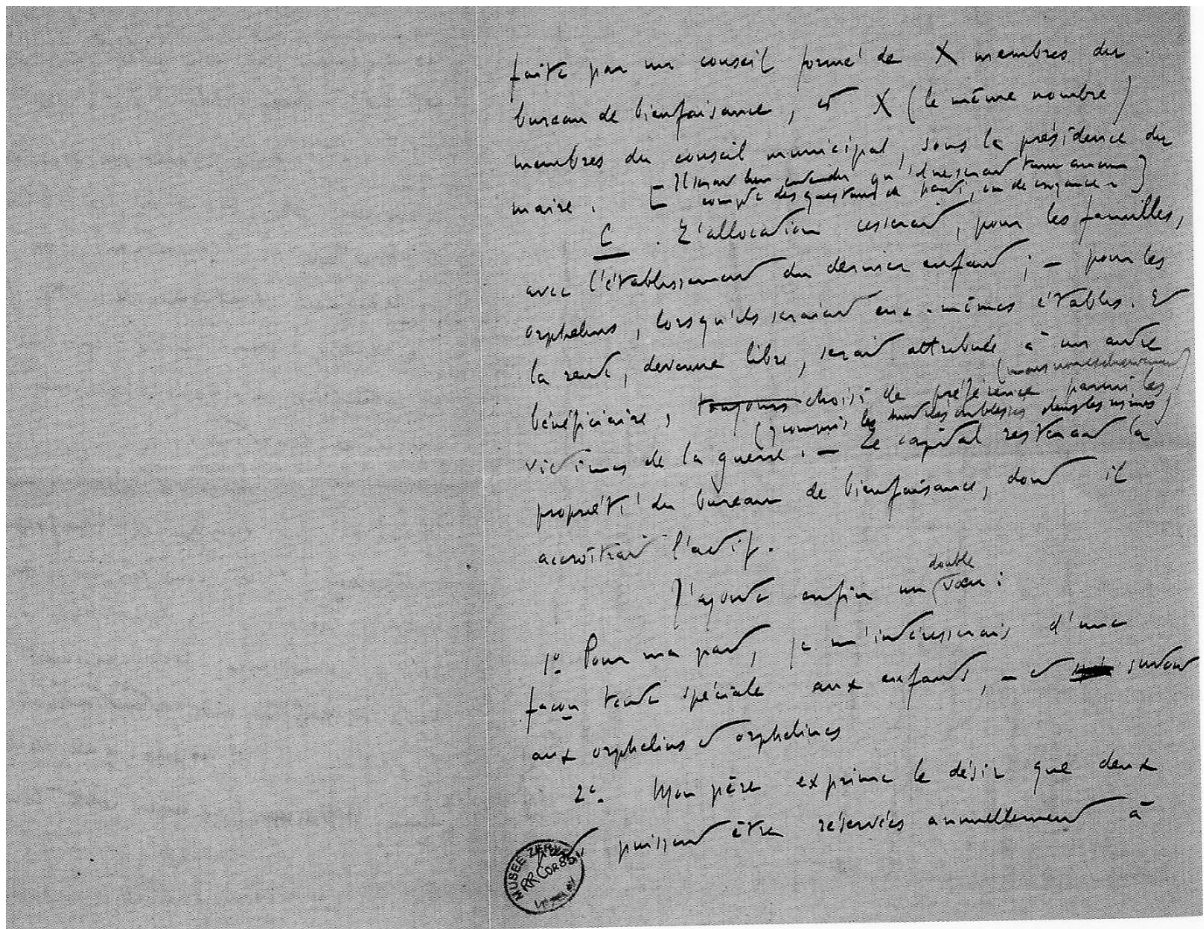 faite par un conseil formé de X membres du
bureau de bienfaisance, et X (le même nombre)
membres du conseil municipal, sous la présidence du
maire. [- Il serait bien entendu qu'il ne serait tenu aucun
compte des questions de parti, ou de croyance - ]
C. L'allocation cesserait, pour les familles,
avec l'établissement du dernier enfant ; - pour les
orphelins, lorsqu'ils seraient eux-mêmes établis. Et
la rente, devenue libre, serait attribuée à un autre
(mais non exclusivement)
bénéficiaire, toujours choisi de préférence parmi les
(y compris les dans les usines)
victimes de la guerre. - Le capital resterait la
propriété du bureau de bienfaisance, dont il
accroîtrait l'actif.
J'ajoute enfin un double vœu :
1º Pour ma part, je m'intéresserais d'une
façon toute spéciale aux enfants, - et surtout
aux orphelins et orphelines
2º. Mon père exprime le désir que deux
puissent être réservées annuellement à
MUSEE